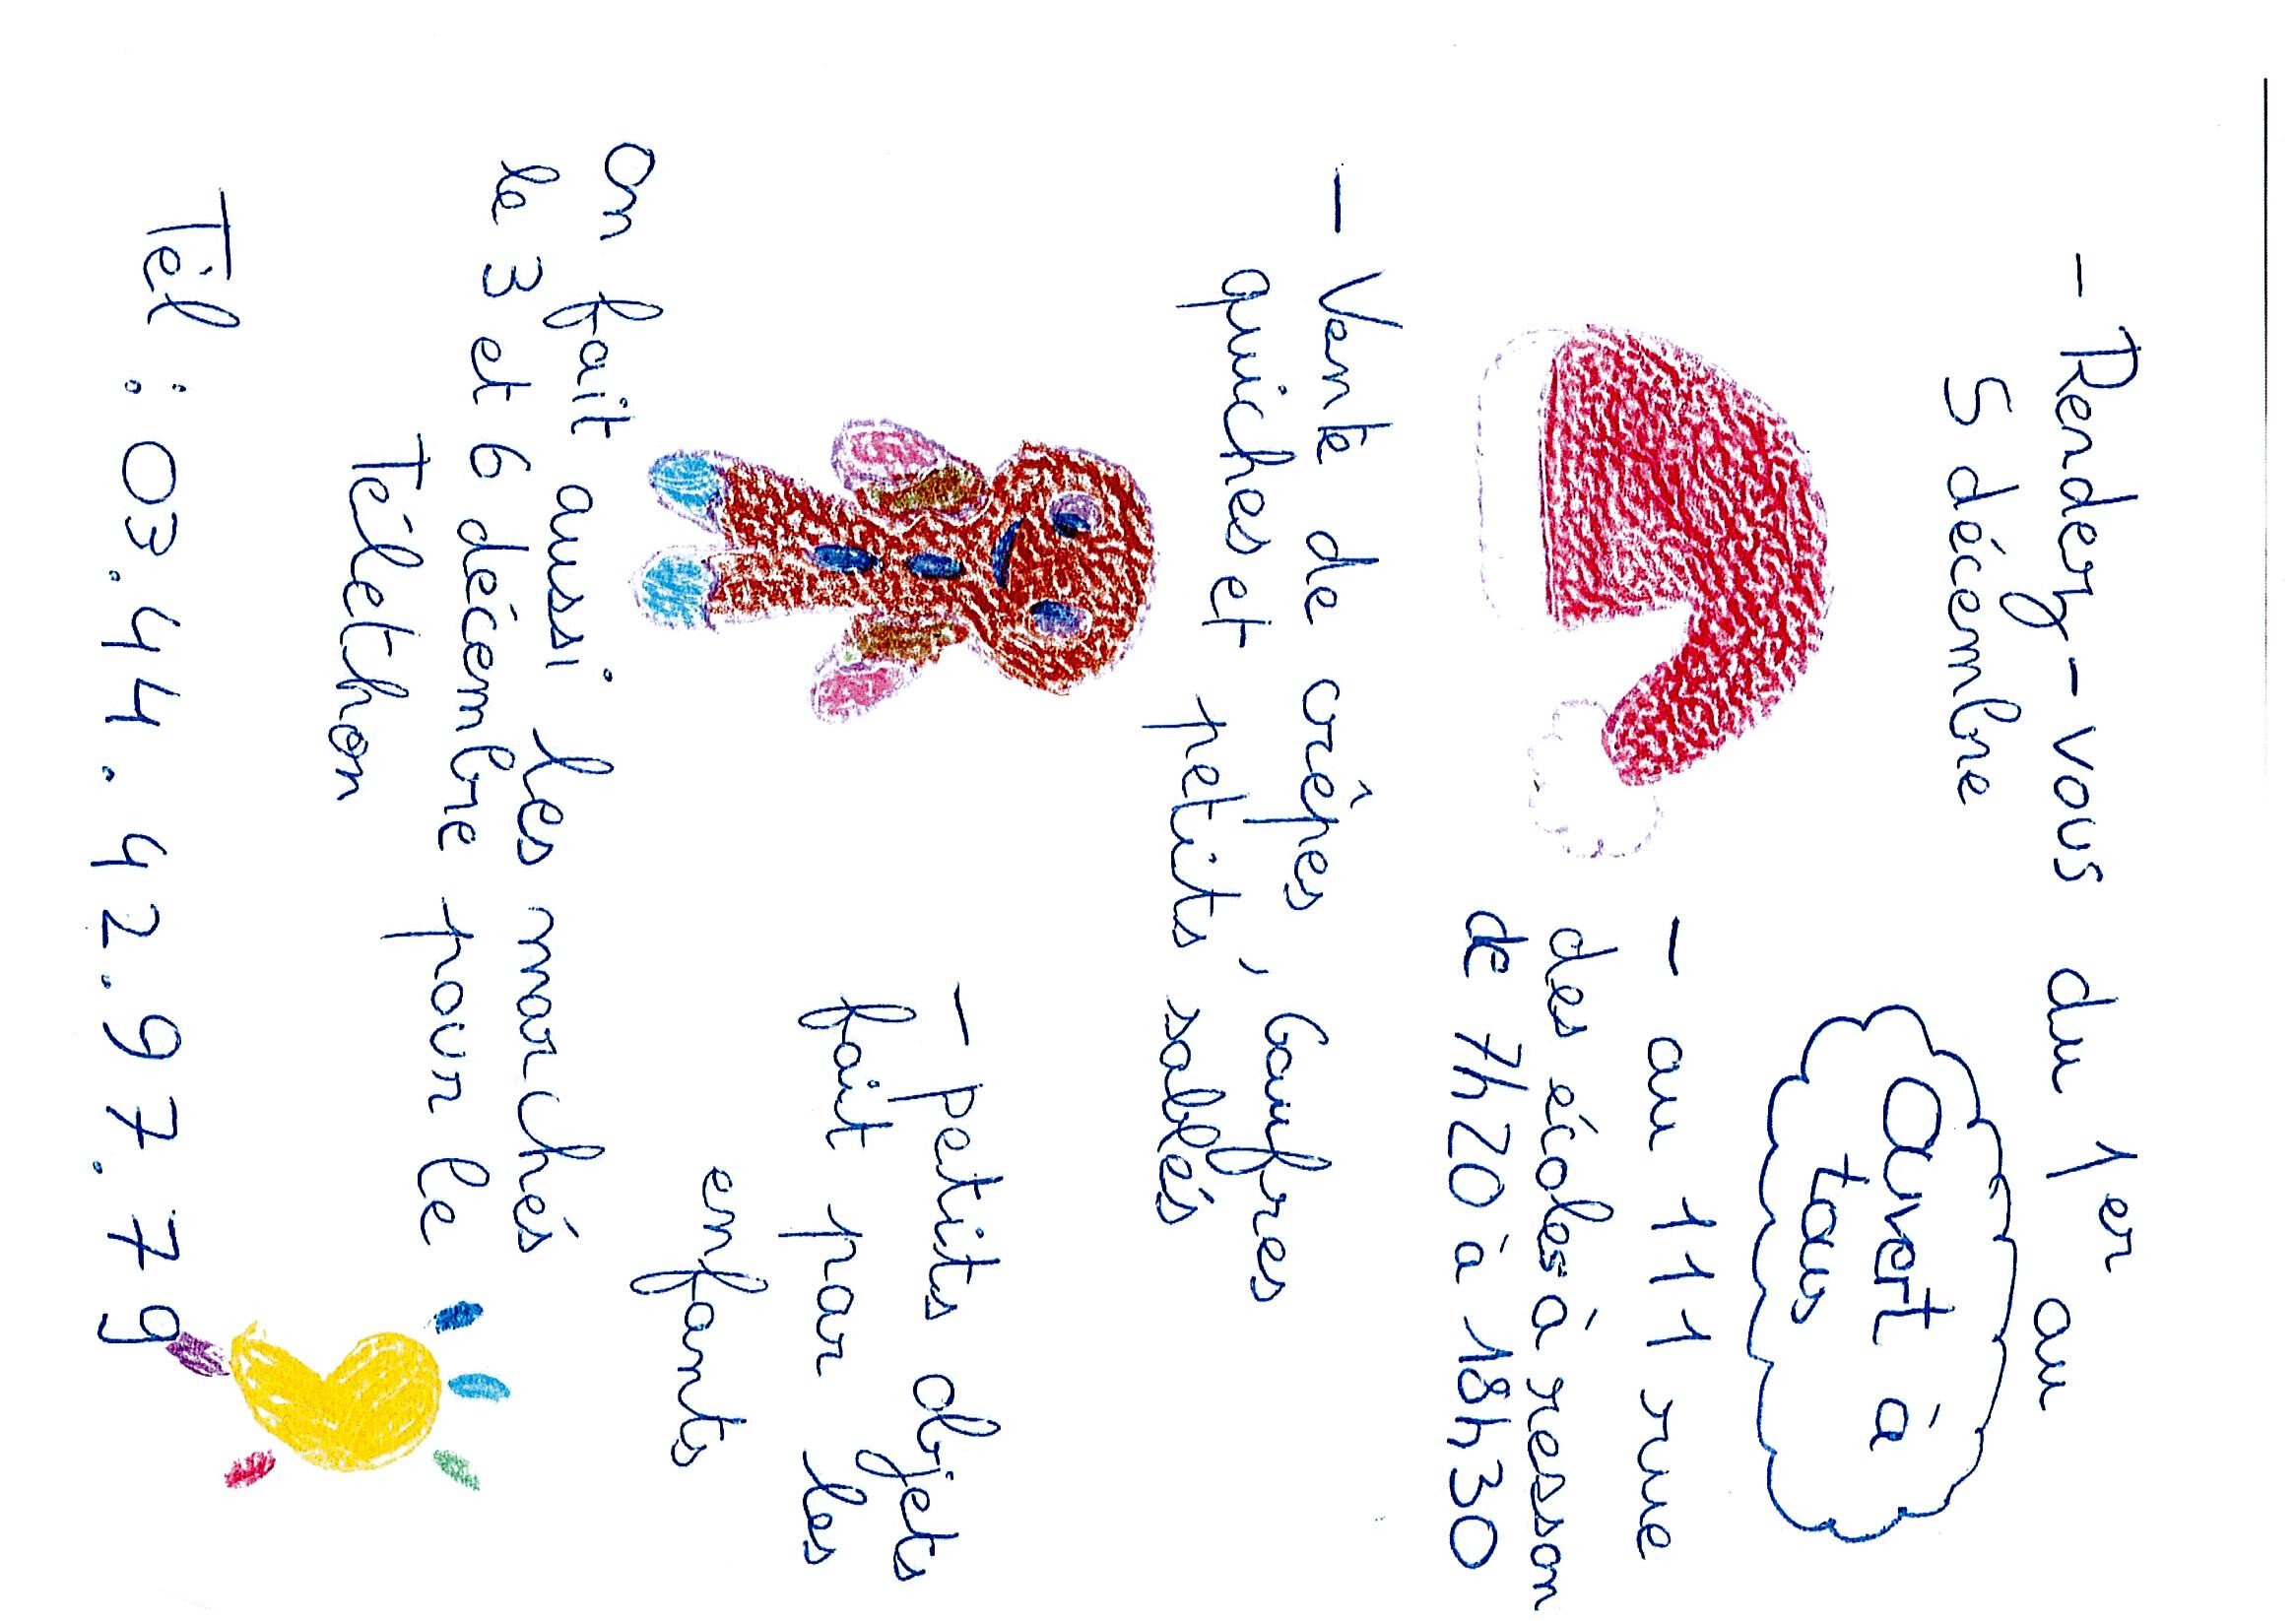 - Rendez-vous du 1er au
5 décembre
Ouvert à
tous
- au 111 rue
des écoles à ressson
de 7h20 à 18h30
- Vente de crêpes, Gaufres
quiches et petits sablés
- petits objets
fait par les
enfants
On fait aussi les marchés
le 3 et 6 décembre pour le
Téléthon
Tél : 03.44.42.97.79